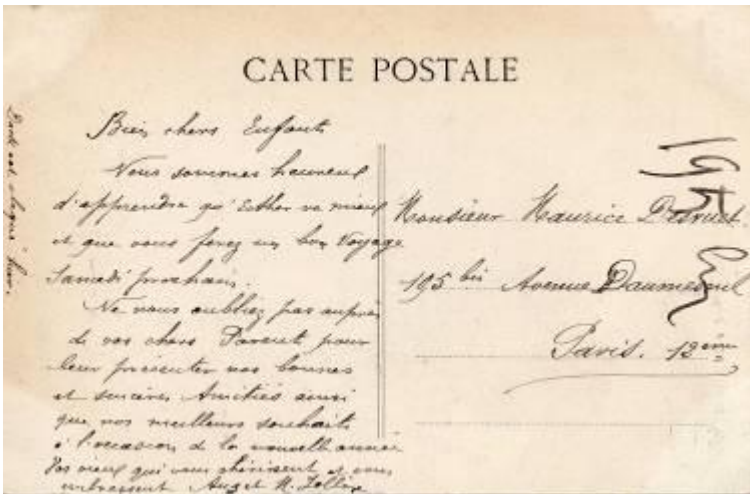 CARTE POSTALE
Bien chers Enfants
Nous sommes heureux
d'apprendre qu'Esther va mieux
et que vous ferez un bon Voyage
Samedi prochain.
Ne nous oubliez pas auprès
de vos chers Parent pour
leur présenter nos bonnes
et sincères Amitiés ainsi
que nos meilleurs souhaits
à l'occasion de la nouvelle année
Vos vieux qui vous chérissent et vous
embrassent
Monsieur Maurice
195 bis Avenue Daumesnil
Paris. 12eme